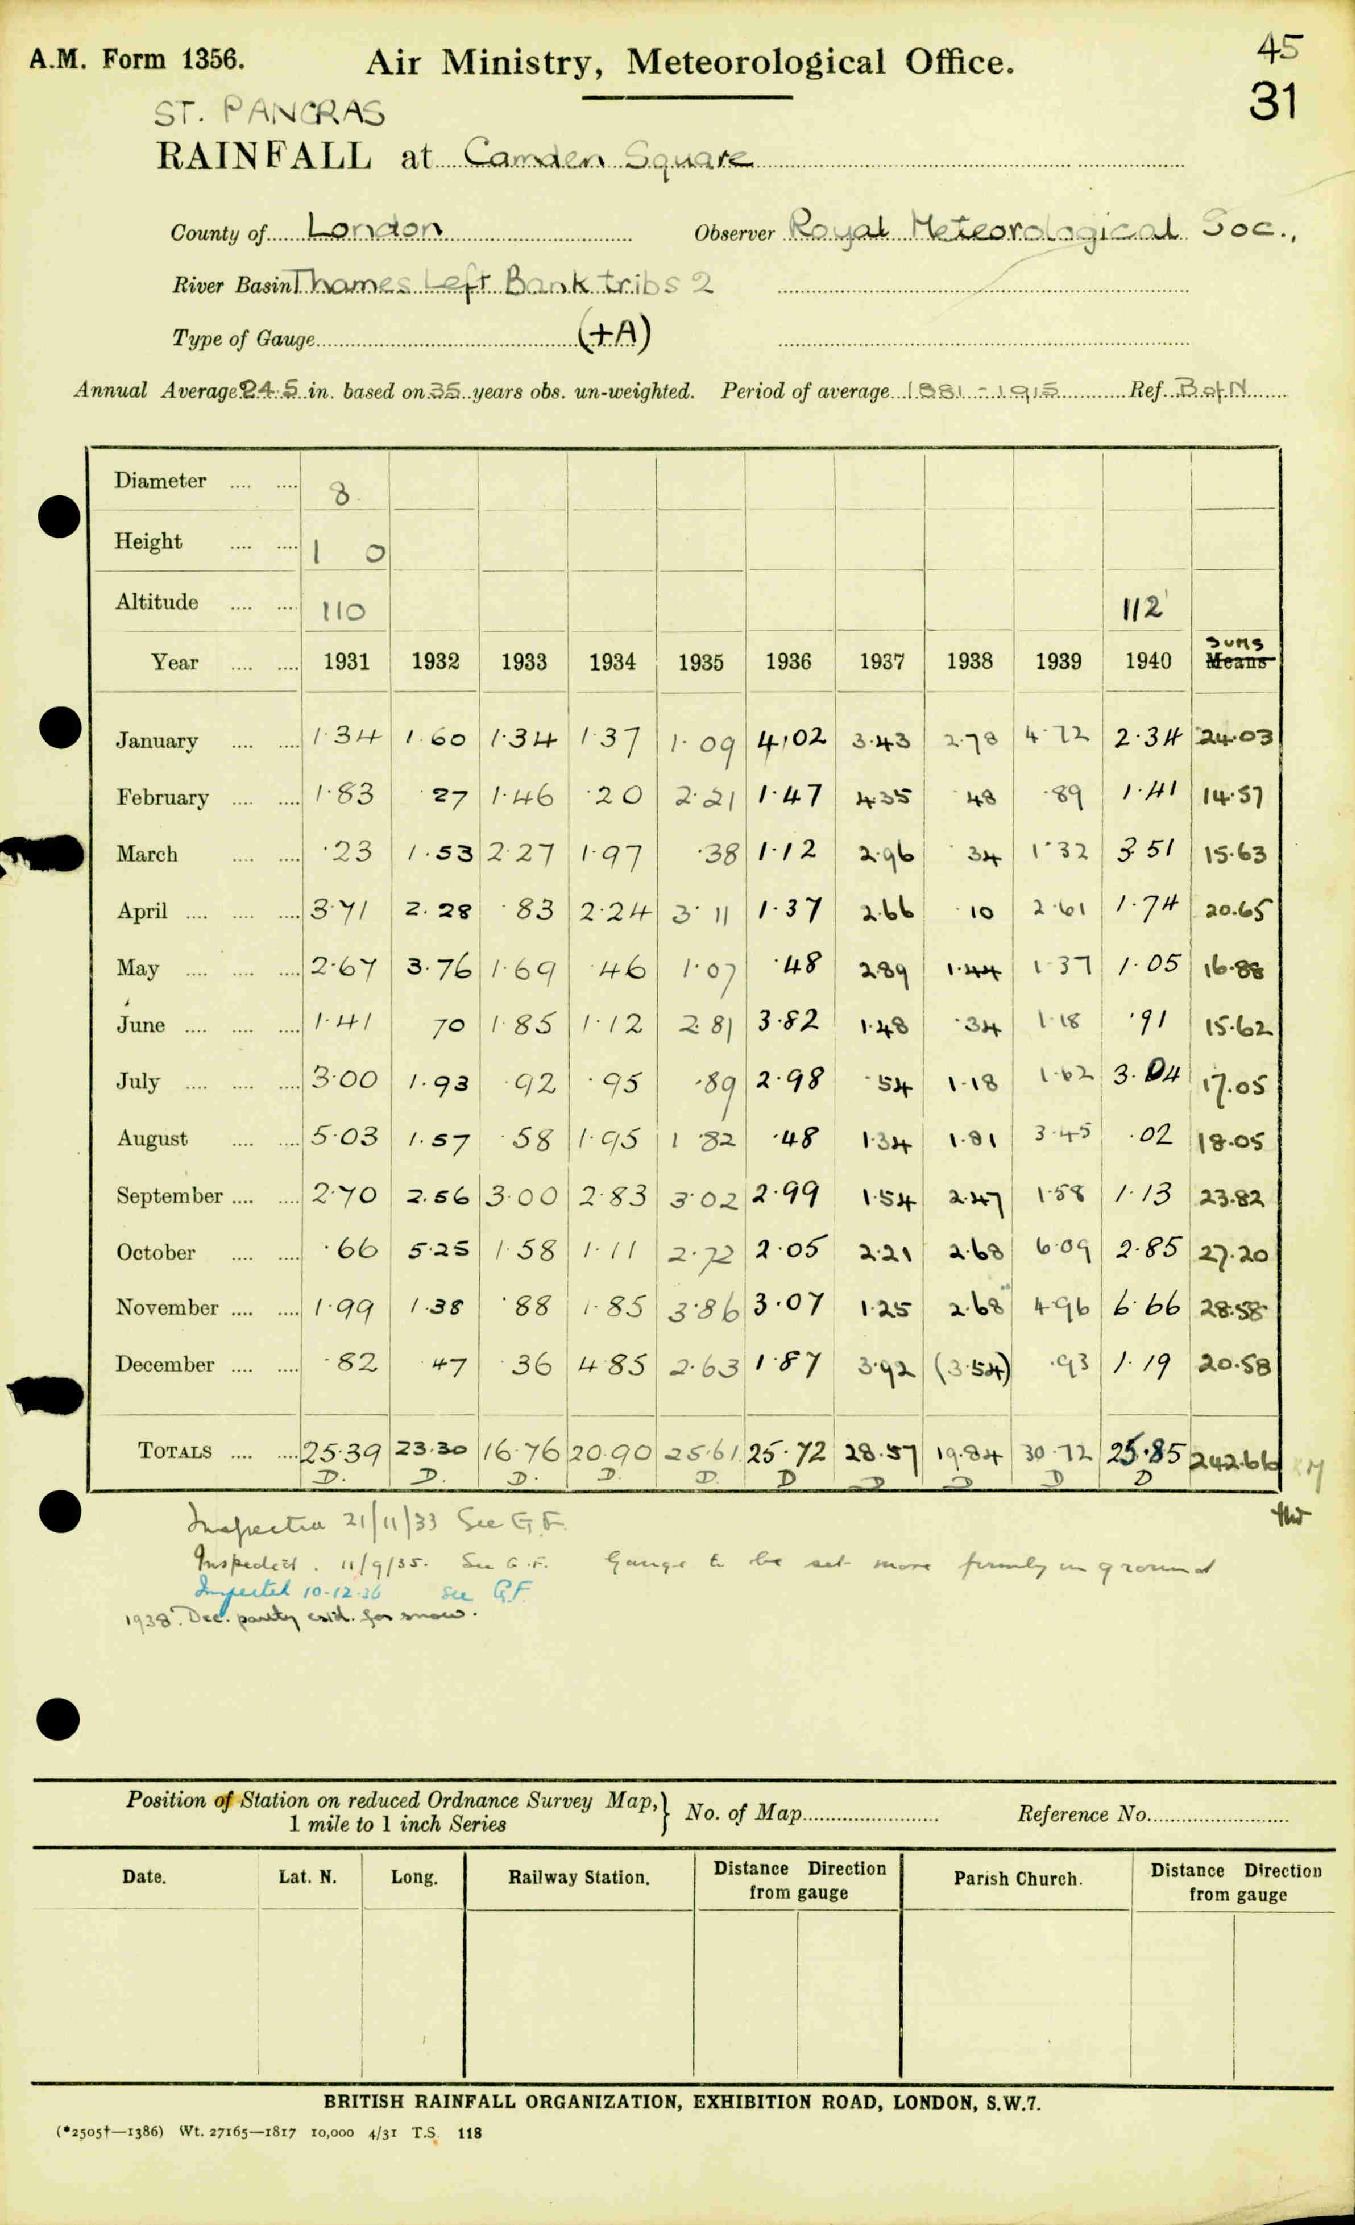 A.M. Form 1356. Air Ministry, Meteorological Office. 45
31
ST. PANCRAS
RAINFALL at Camden Square
County of London Observer Royal Meteorological Soc.,
River Basin Thames Left Bank tribs 2
Type of Gauge (+A)
Annual Average 24.5 in. based on 35 years obs. un-weighted. Period of average 1881 - 1915 Ref. B of N
Diameter 8
Height 1 0
Altitude 110 112'
sums
Year 1931 1932 1933 1934 1935 1936 1937 1938 1939 1940 Means
January 1.34 1.60 1.34 1.37 1.09 4.02 3.43 2.78 4.72 2.34 24.03
February 1.83 .27 1.46 .20 2.21 1.47 4.35 .48 .89 1.41 14.57
March .23 1.53 2.27 1.97 .38 1.12 2.96 .34 1.32 3.51 15.63
April 3.71 2.28 .83 2.24 3.11 1.37 2.66 .10 2.61 1.74 20.65
May 2.67 3.76 1.69 .46 1.07 .48 2.89 1.44 1.37 1.05 16.88
June 1.41 70 1.85 1.12 2.81 3.82 1.48 .34 1.18 .91 15.62
July 3.00 1.93 .92 .95 .89 2.98 .54 1.18 1.62 3.04 17.05
August 5.03 1.57 .58 1.95 1.82 .48 1.34 1.81 3.45 .02 18.05
September 2.70 2.56 3.00 2.83 3.02 2.99 1.54 2.47 1.58 1.13 23.82
October .66 5.25 1.58 1.11 2.72 2.05 2.21 2.68 6.09 2.85 27.20
November 1.99 1.38 .88 1.85 3.86 3.07 1.25 2.68 4.96 6.66 28.58
December .82 47 .36 4.85 2.63 1.87 3.92 (3.54) .93 1.19 20.58
TOTALS 25.39 23.30 16.76 20.90 25.61 25.72 28.57 19.84 30.72 25.85 242.66
D. D. D. D. D. D D D D D
Inspected 21/11/33 See G.F.
Inspected. 11/9/35. See G.F. Gauge to be set more firmly in ground
Inspected 10-12-36 see G.F.
1938. Dec. partly estd. for snow.
Position of Station on reduced Ordnance Survey Map, } No. of Map Reference No.
1 mile to 1 inch Series
Date. Lat. N. Long. Railway Station. Distance Direction from gauge Parish Church. Distance Direction from gauge
BRITISH RAINFALL ORGANIZATION, EXHIBITION ROAD, LONDON, S.W.7.
(*2505†—1386) Wt. 27165—1817 10,000 4/31 T.S. 118